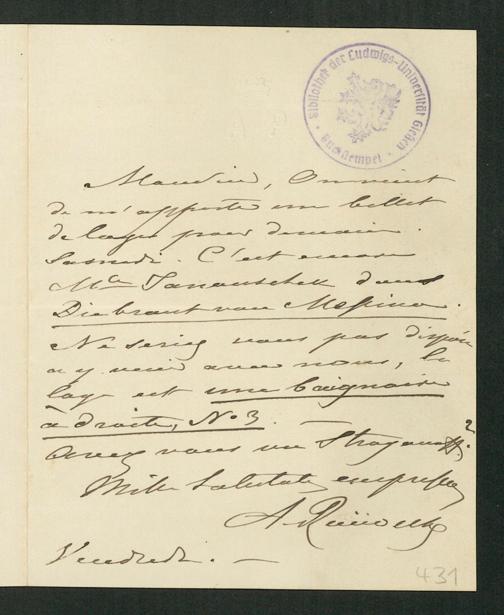 Bibliothek der Ludwigs-Universität Gießen
Monsieur, On vient
de m'apporter un billet
de loge pour demain
Samedi. C'est encore
Mlle Janauschek dans
Die braut von Messina.
Ne seriez vous pas disposé
a y venir avec nous, la
loge est une baignoire
à droite, No 3. —
Avez vous vu Stroganoff?
Mille salutat. empressées
Vendredi. —
431